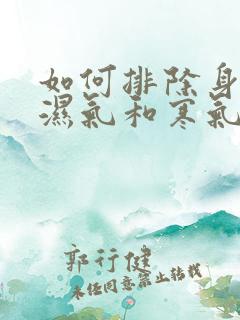 如何排除身
濕氣和寒氣
郭行健
未經同意禁止轉載